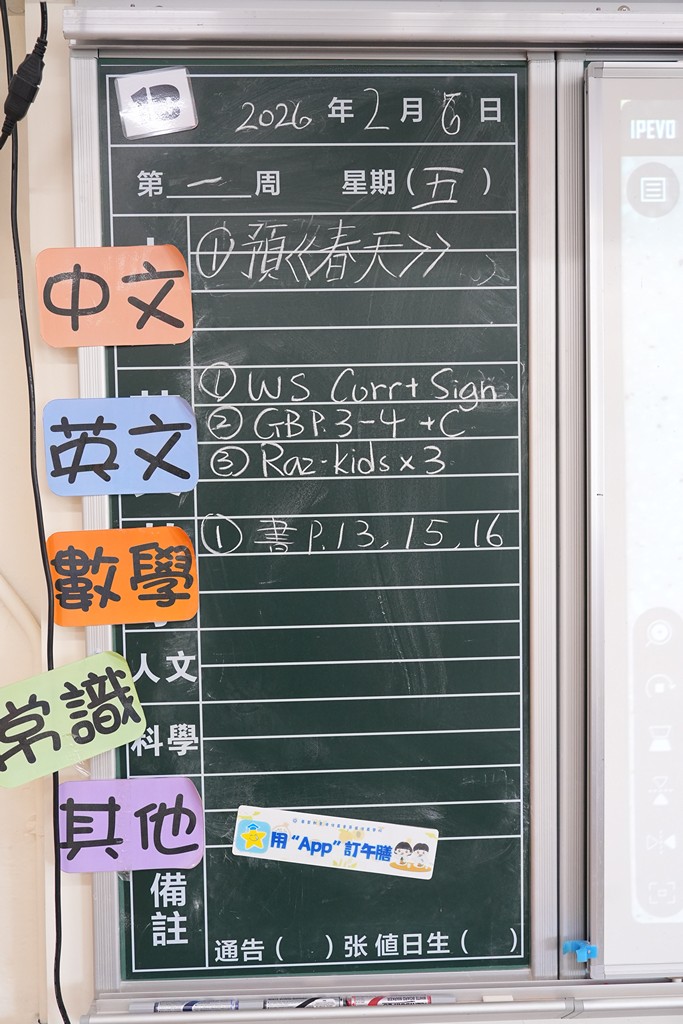 2026 年 2 月 6 日
第 一 周 星期 ( 五 )
中文
① 預《春天》
英文
① WS Corr+ Sign
② GB P.3-4 +C
③ Raz-kids x 3
數學
① 書 P.13, 15, 16
人文
常識
科學
其他
用 “App” 訂午膳
備註
通告 ( ) 张 值日生 ( )
IPEVO